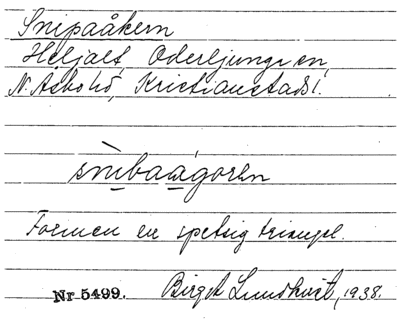 Snipaåkern
Heljalt, Oderljunga sn,
N. Åsbo hd, Kristianstads l.
snibaågorən
Formen en spetsig triangel.
Nr 5499. Birgit Lundkvist, 1938.